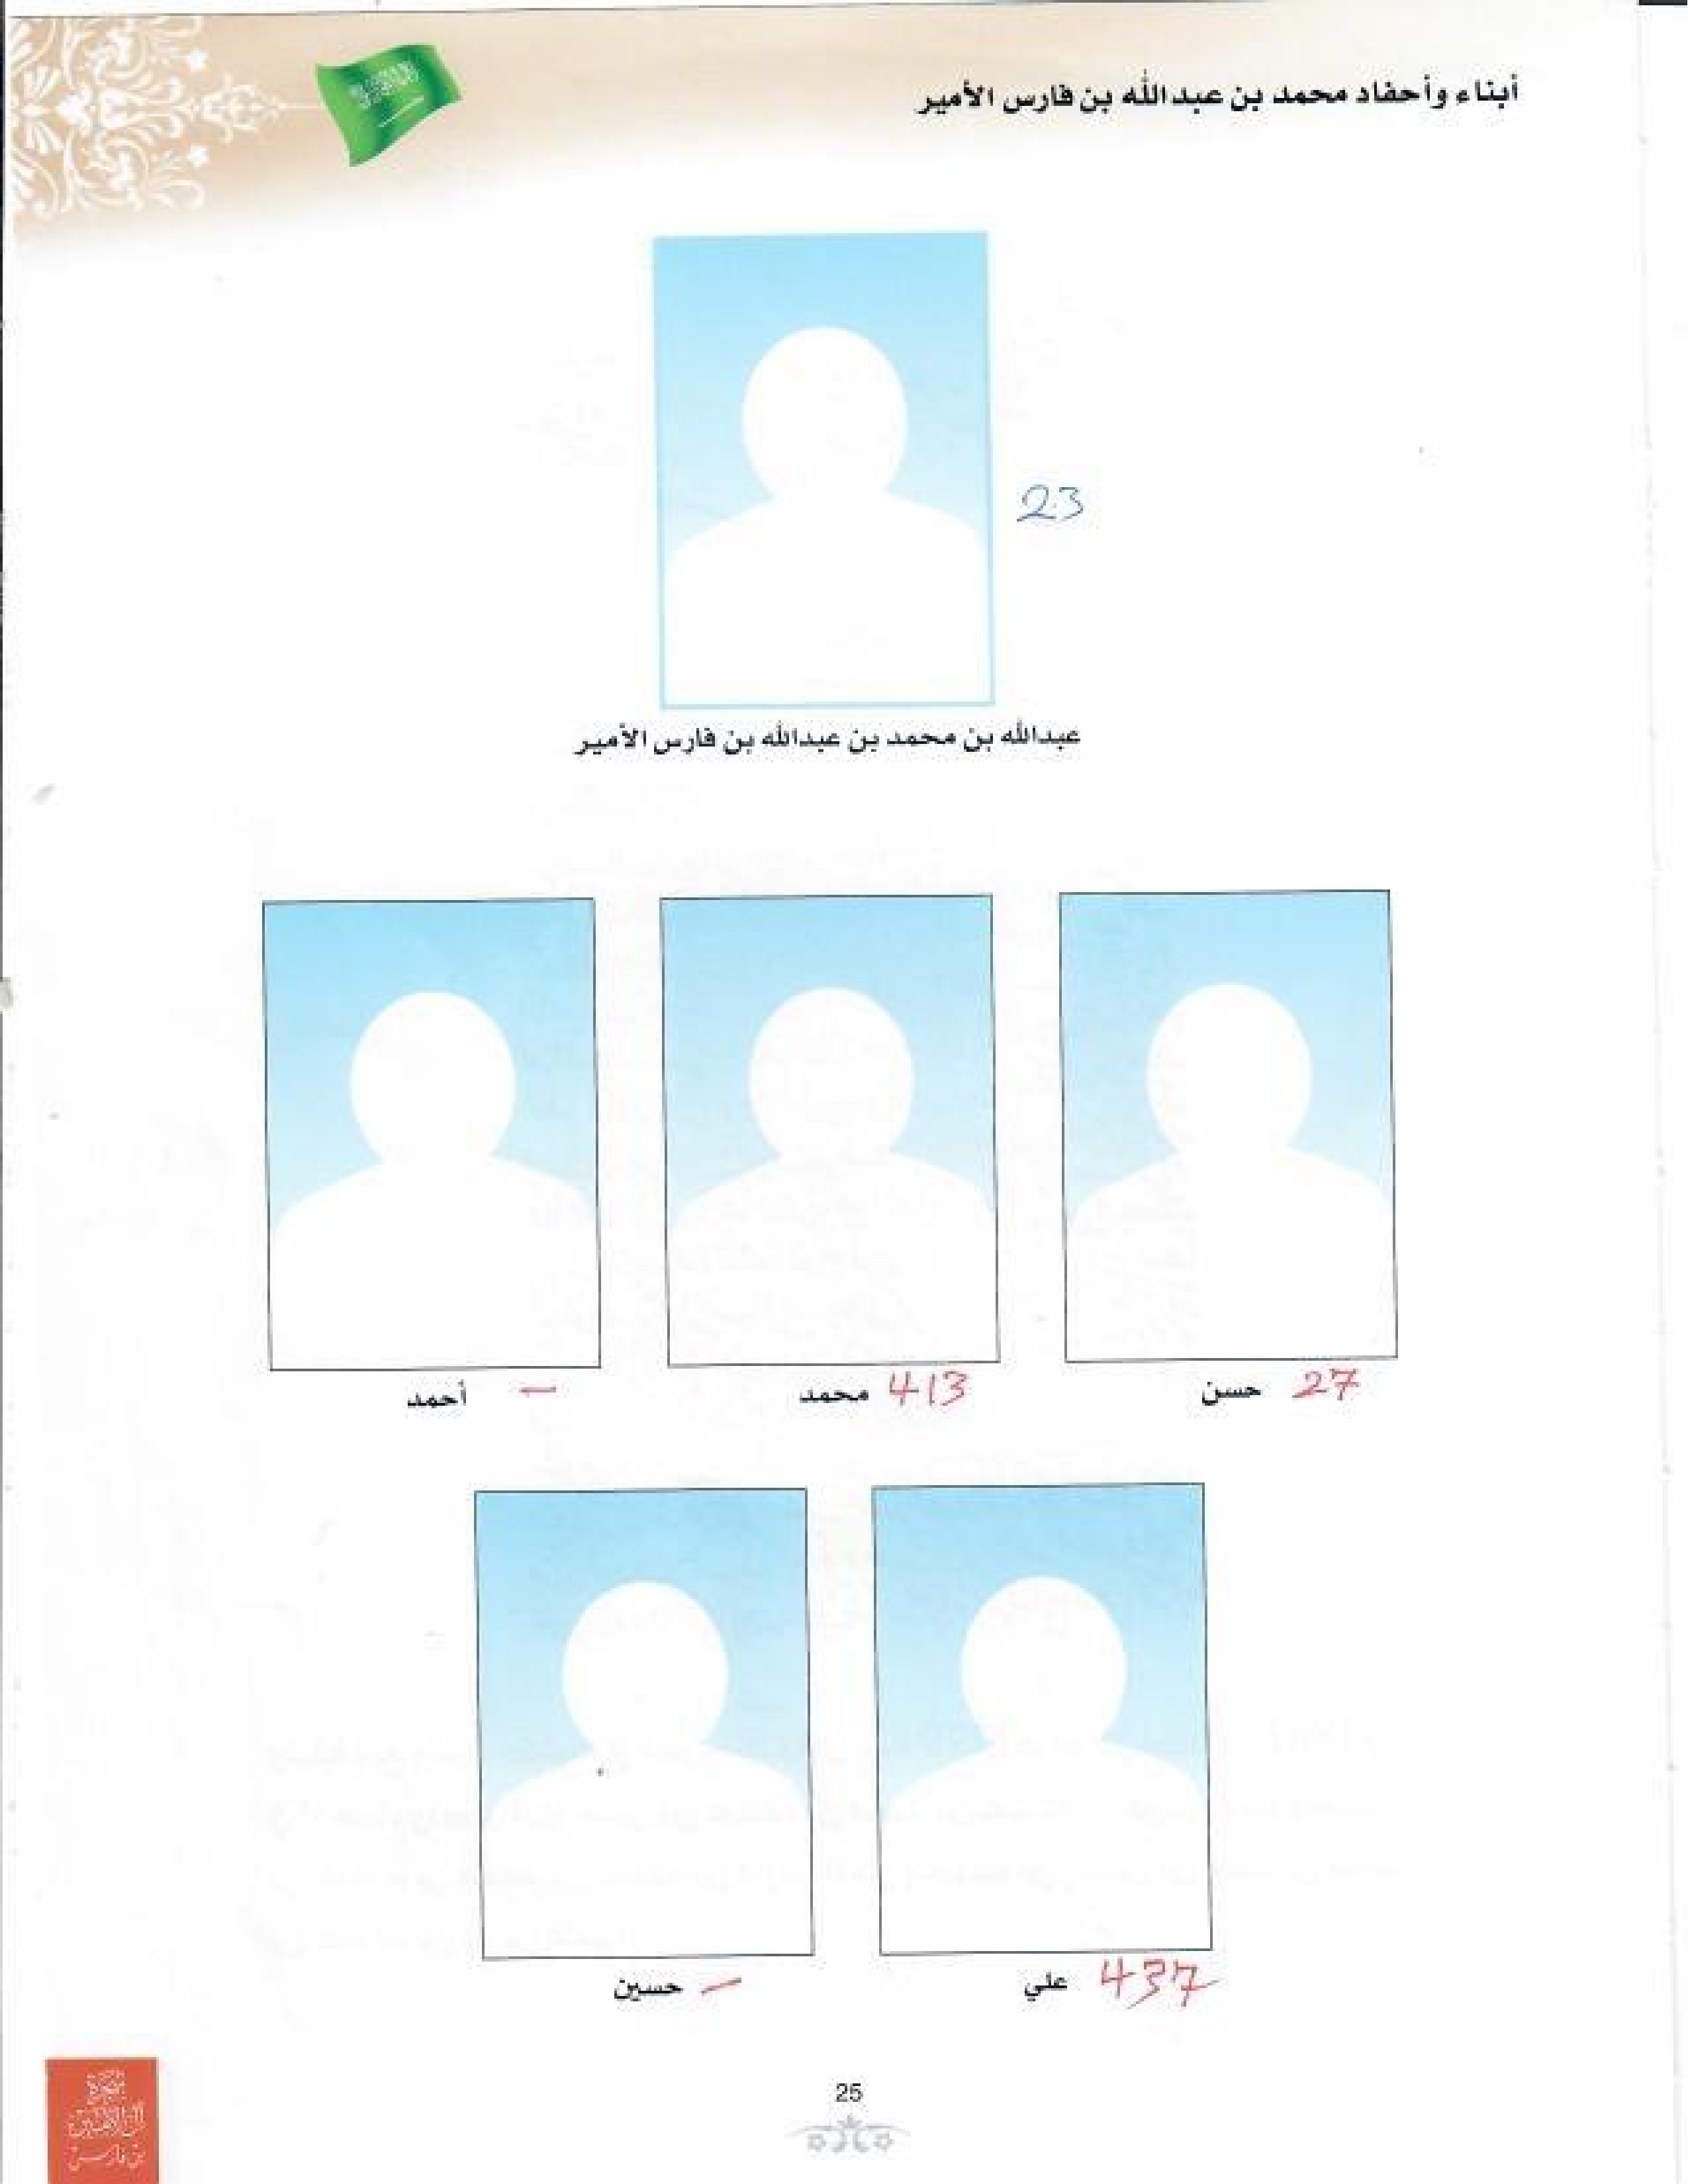 أبناء وأحفاد محمد بن عبدالله بن فارس الأمير
23
عبدالله بن محمد بن عبدالله بن فارس الأمير
حسن 27
محمد 413
أحمد –
علي 437
حسين –
25
شجرة
بن فارس